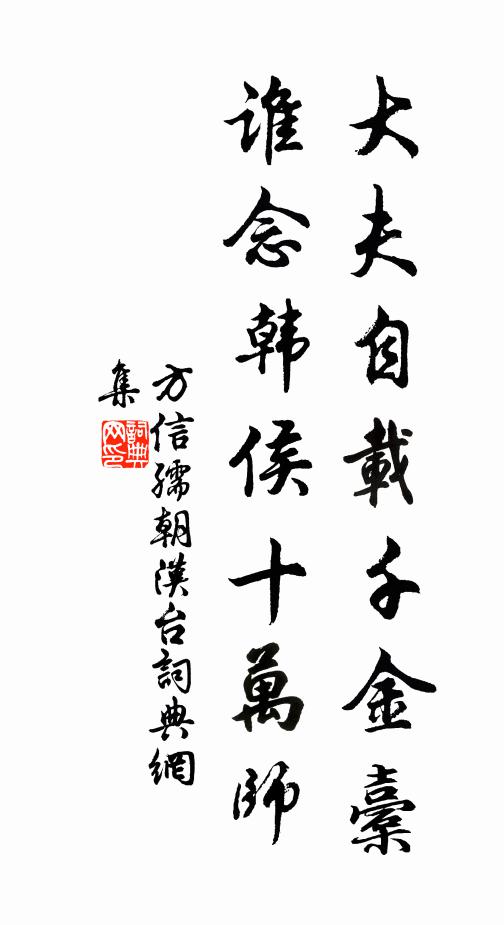 大夫自載千金橐
谁念韩侯十萬師
方信孺朝漢台詞典網
集
詞典网印